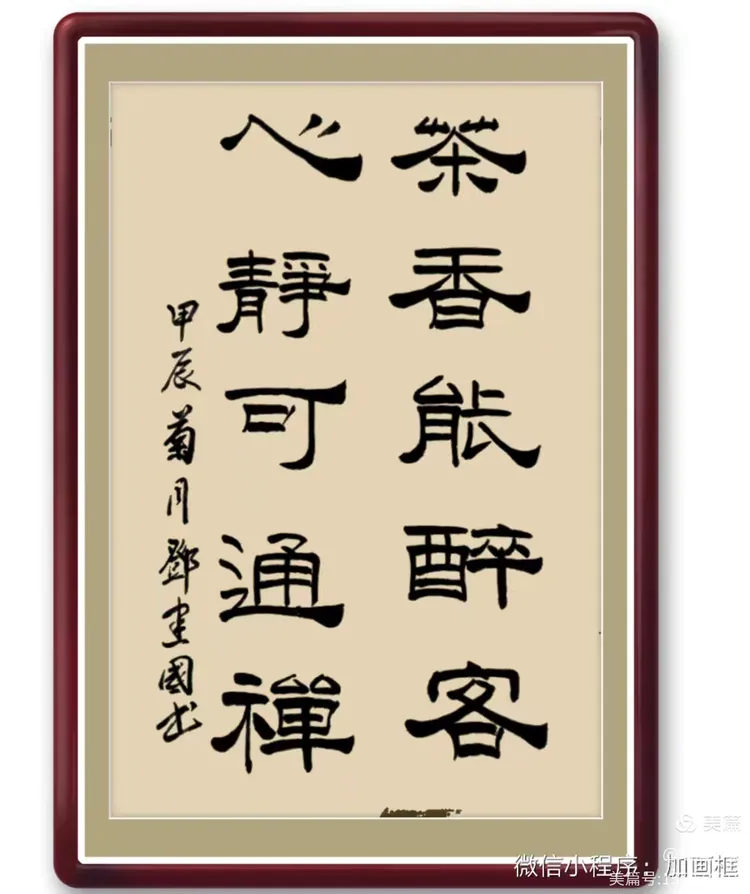 茶香能醉客
心靜可通禪
甲辰菊月鄧建國书
美篇
微信小程序：加画框
美篇号:1